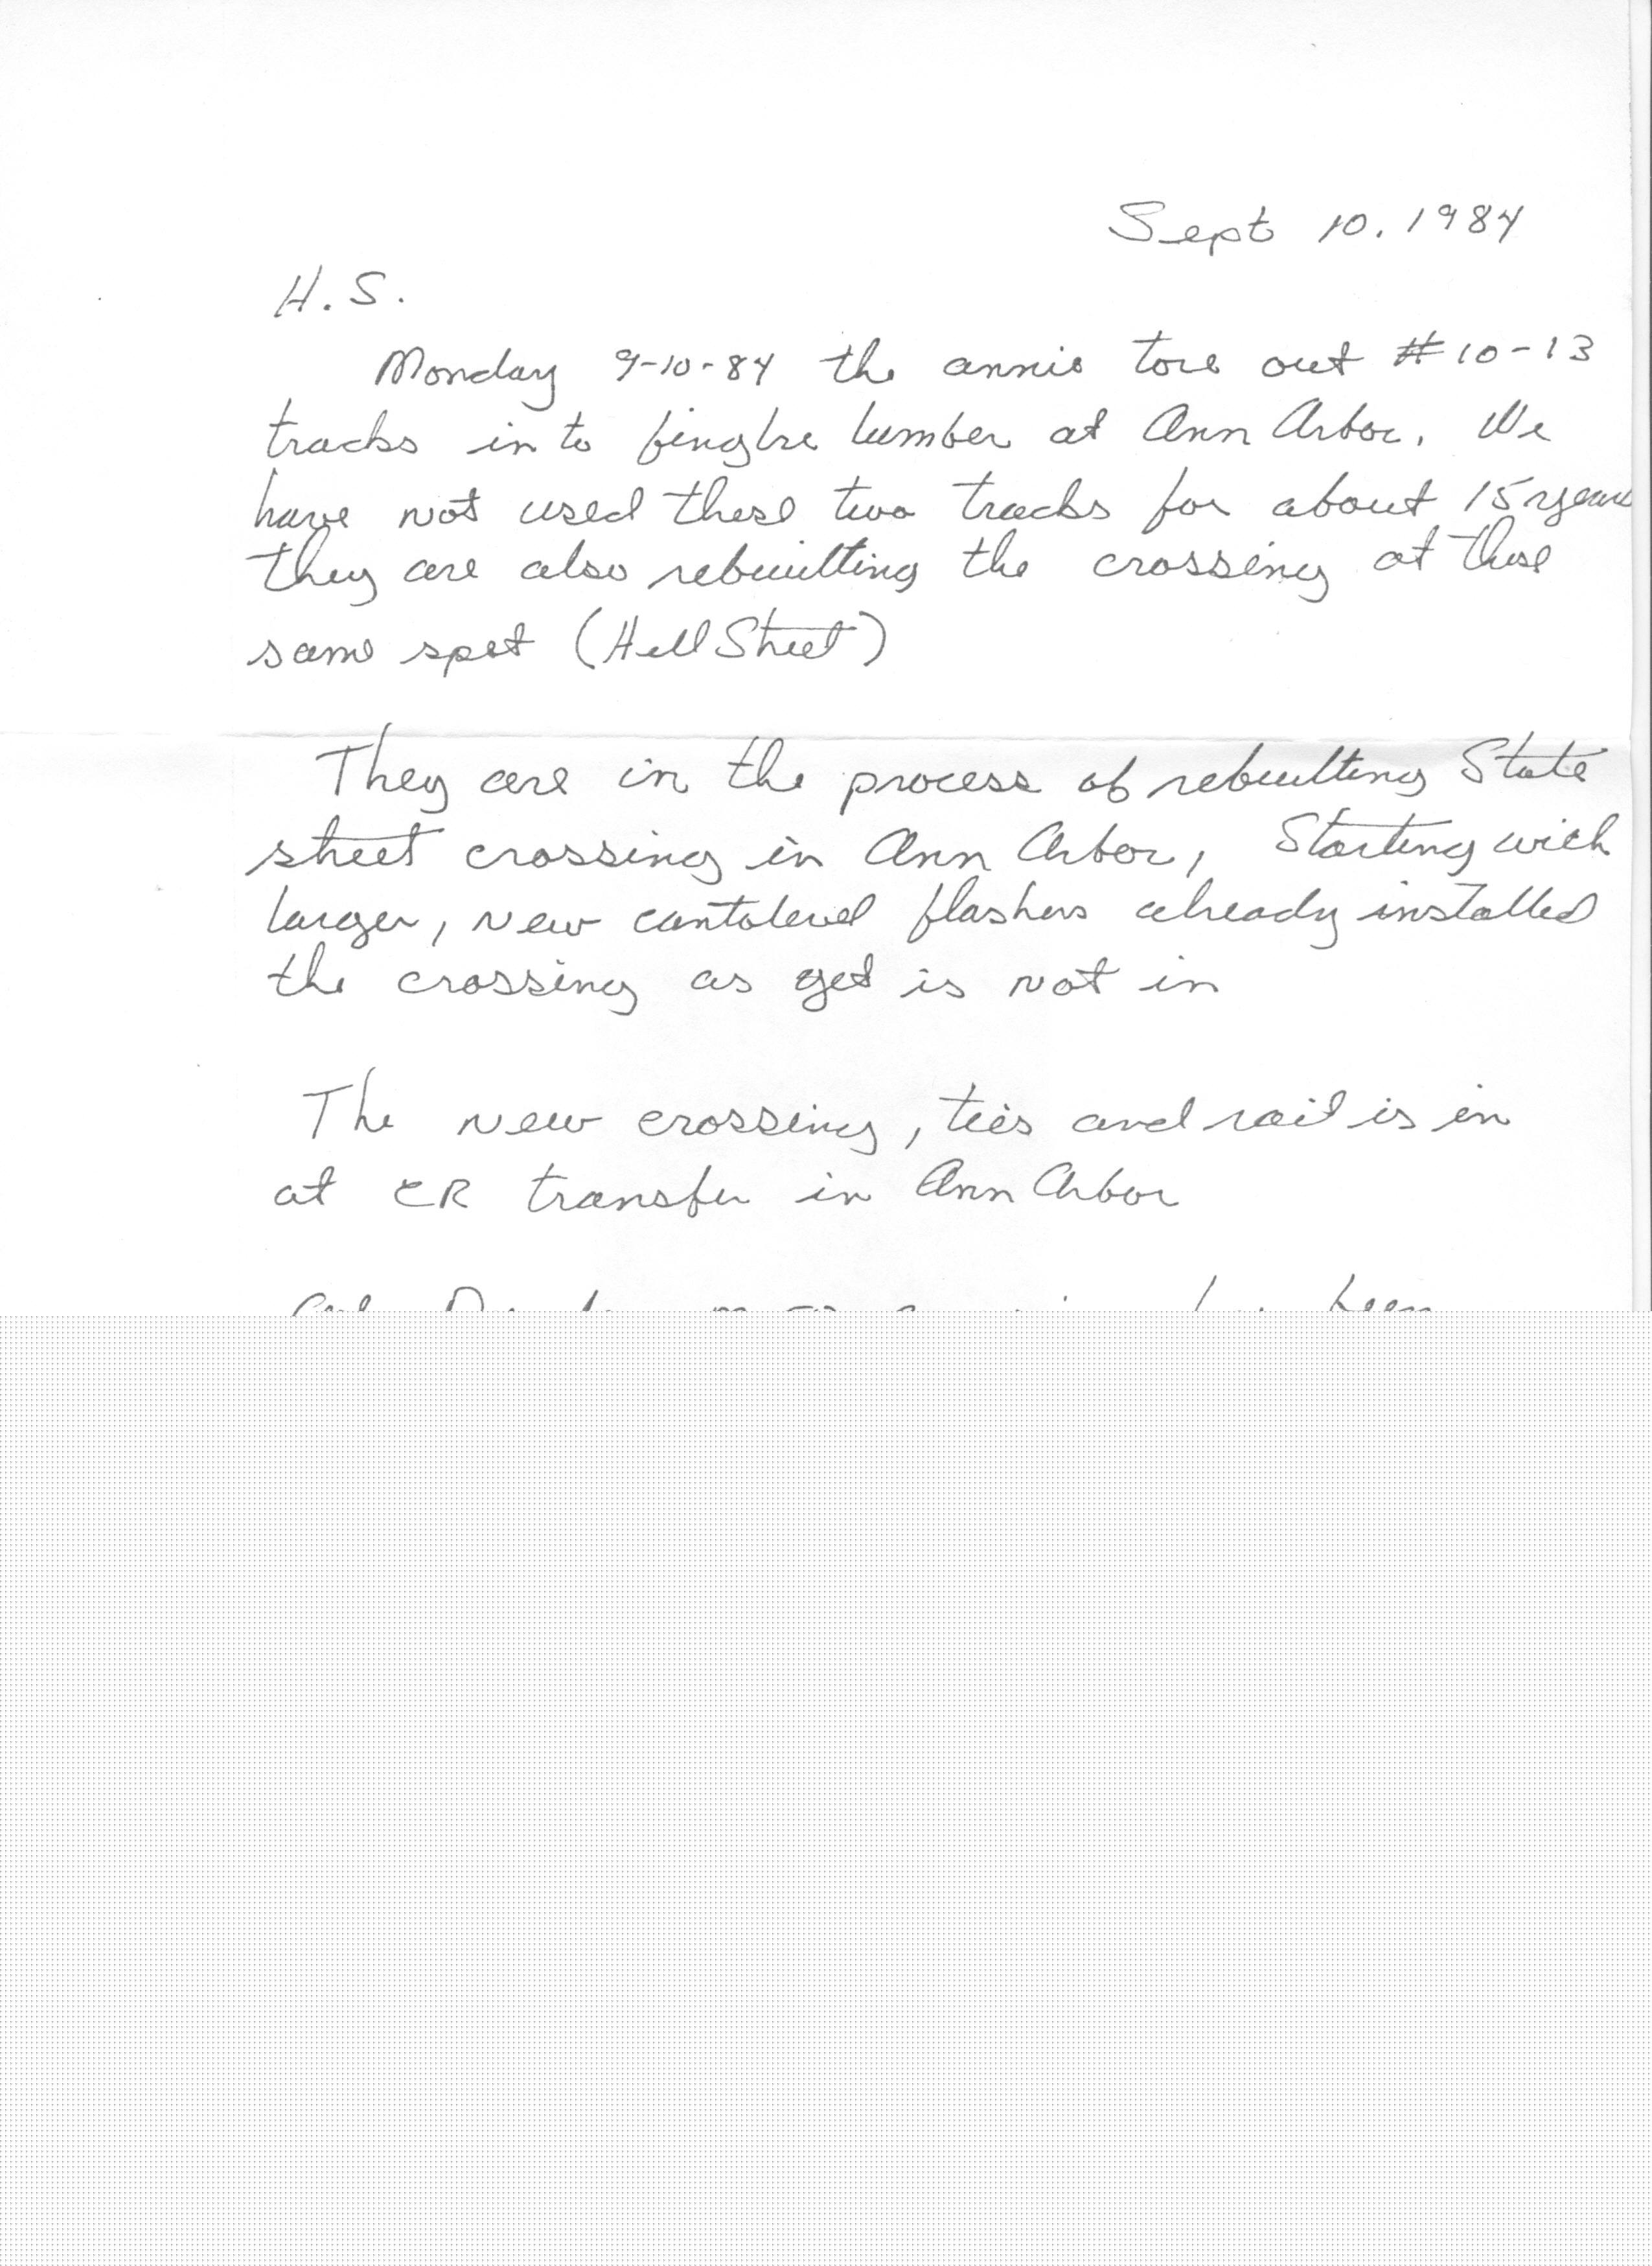 Sept 10. 1984
H.S.
Monday 9-10-84 the annie tore out #10-13
tracks in to lumber at Ann Arbor. We
have not used these two tracks for about 15 years
they are also rebuilting the crossing at these
same spot (Hill Street)
They are in the process of rebuilting State
street crossing in Ann Arbor, Starting with
larger, New cantolevel flashers already installed
the crossing as yet is not in
The New crossing, ties and rail is in
at CR transfer in Ann Arbor
been